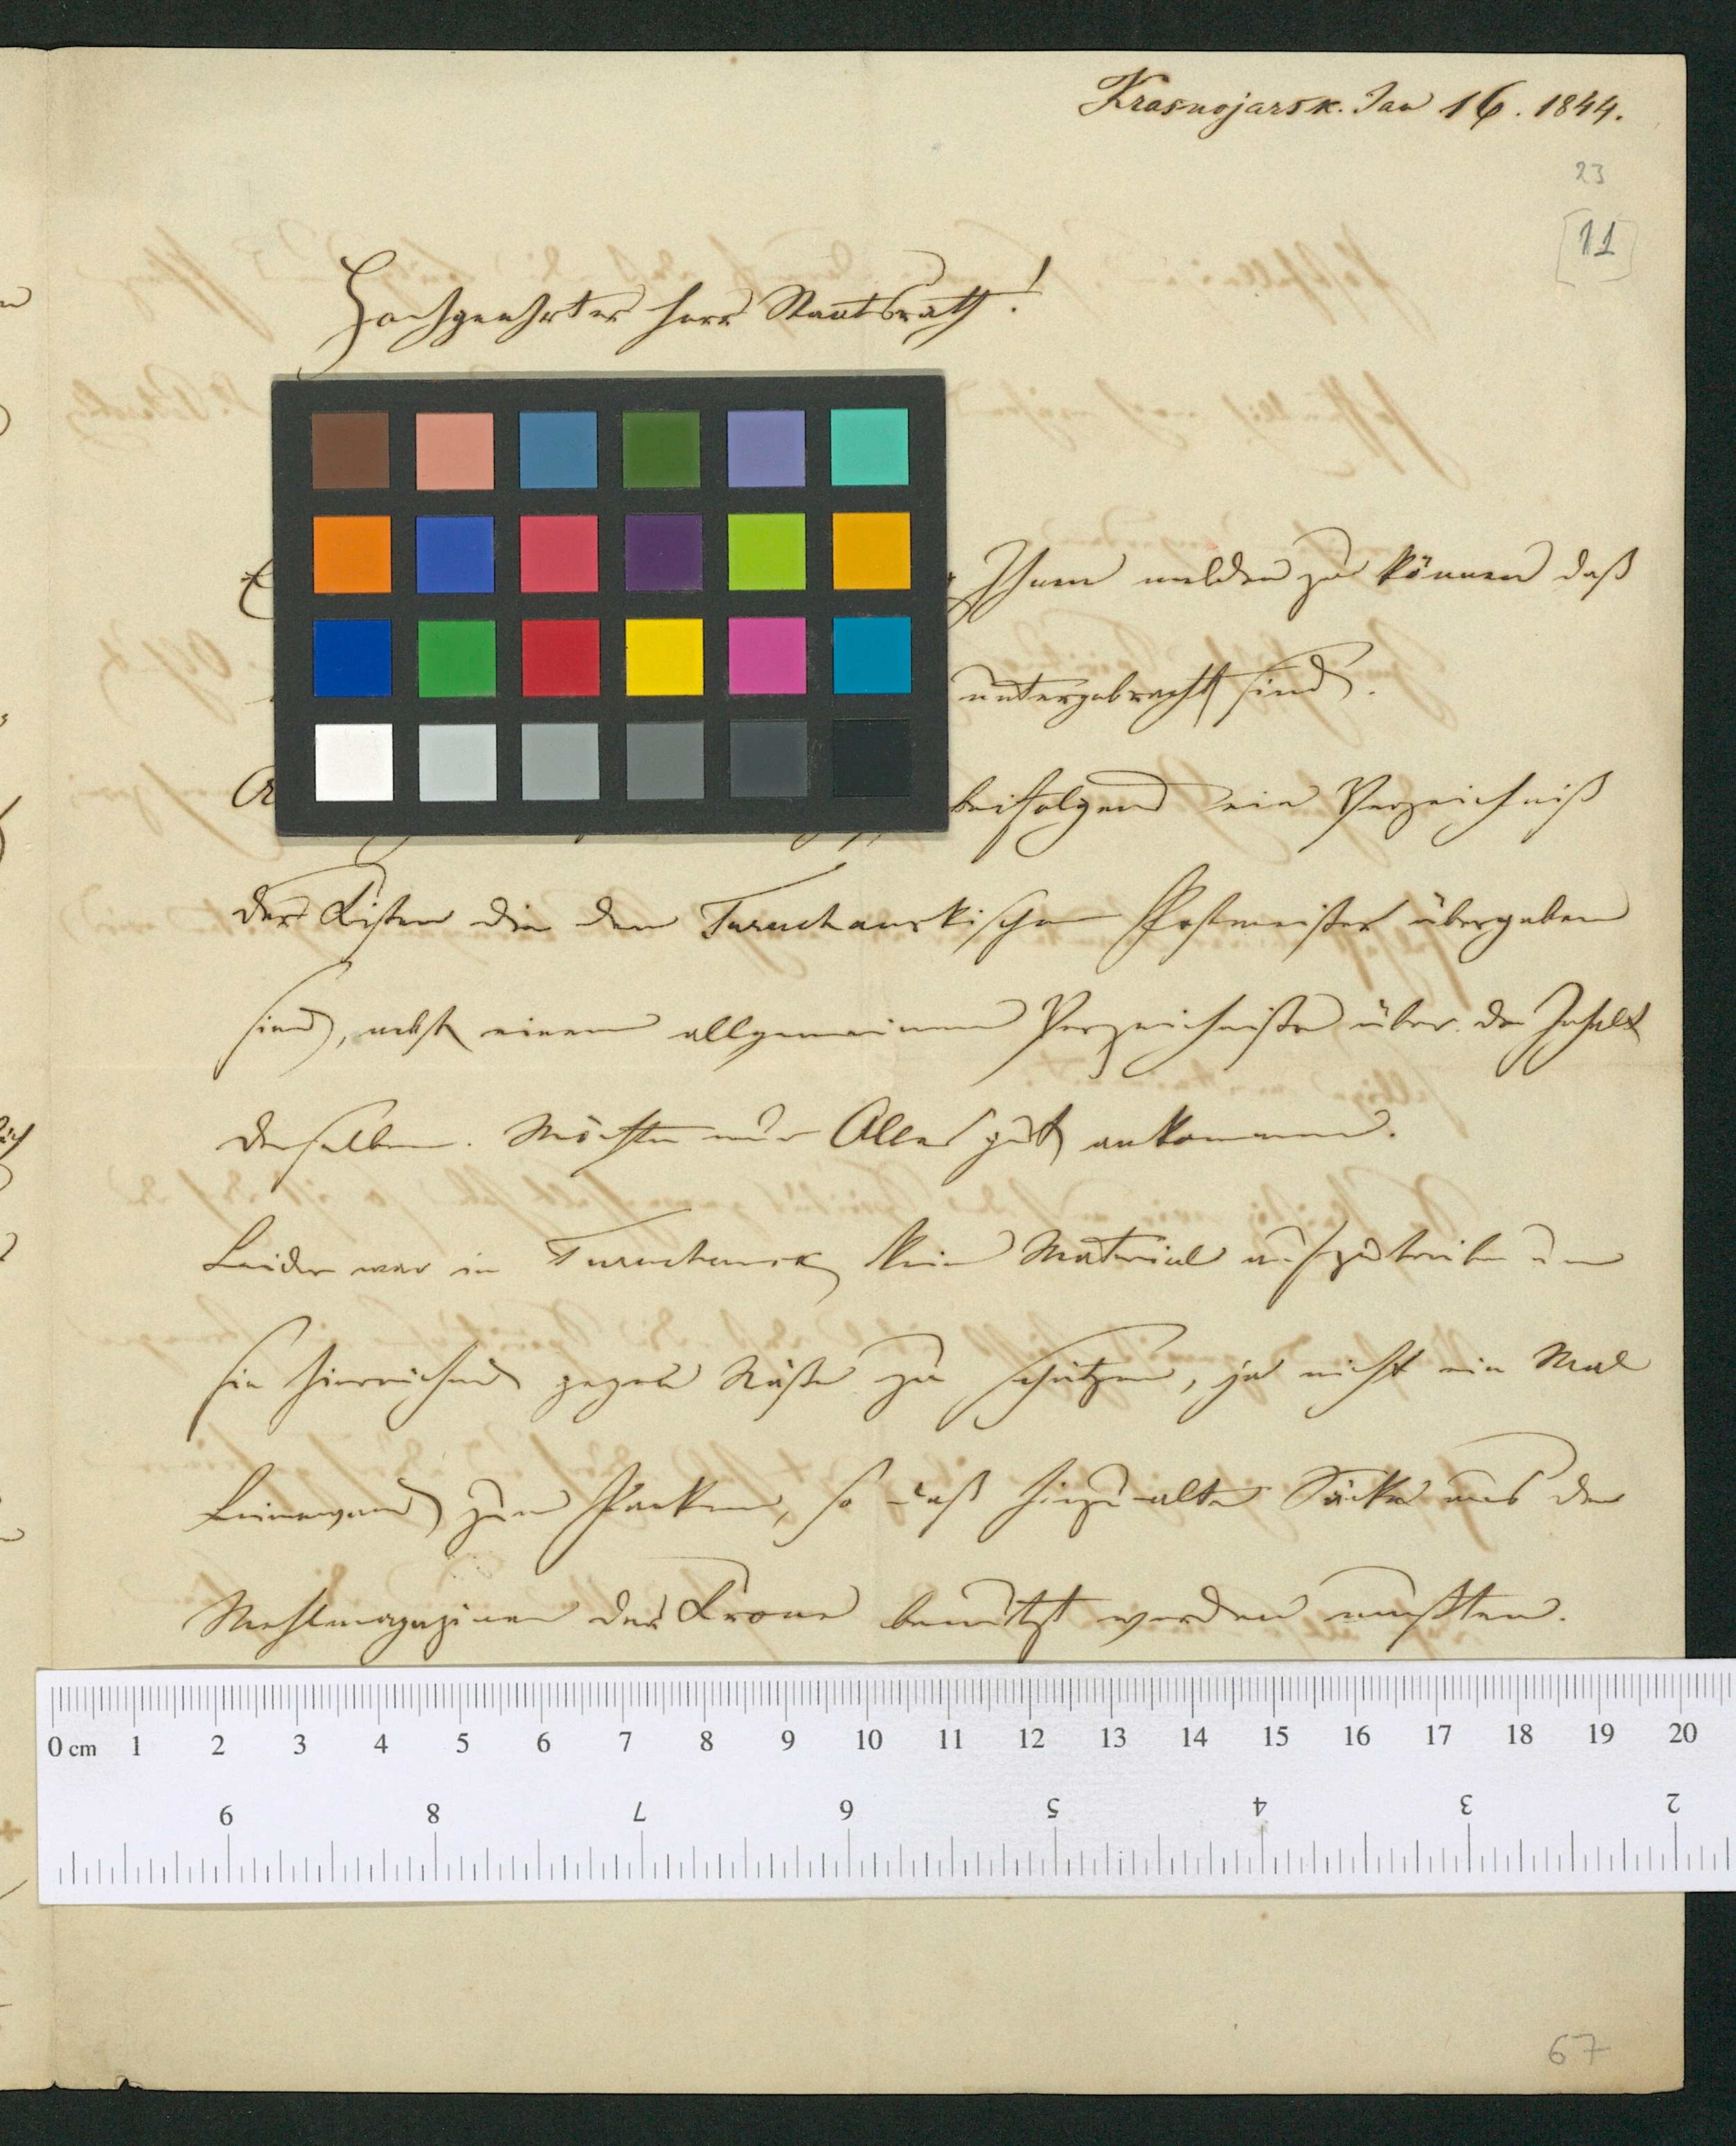 Krasnojarsk. Jan 16. 1844.
23
11
Hochgeehrter Herr Staatsrath!
Ihnen melden zu können daß
untergebracht sind.
beifolgend ein Verzeichniß
der Kisten die dem Turuchanskischen Postmeister übergeben
sind, nebst einem allgemeinen Verzeichnisse über den Inhalt
derselben. Möchte nur Alles gut ankommen.
Leider war in Turuchansk kein Material aufzutreiben um
sie hinreichend gegen Nässe zu schützen, ja nicht ein Mal
Leinewand zum Packen, so daß hiezu alte Säcke aus den
Mehlmagazinen der Krone benutzt werden mußten.
0 cm 1 2 3 4 5 6 7 8 9 10 11 12 13 14 15 16 17 18 19 20
9 8 7 6 5 4 3 2
67